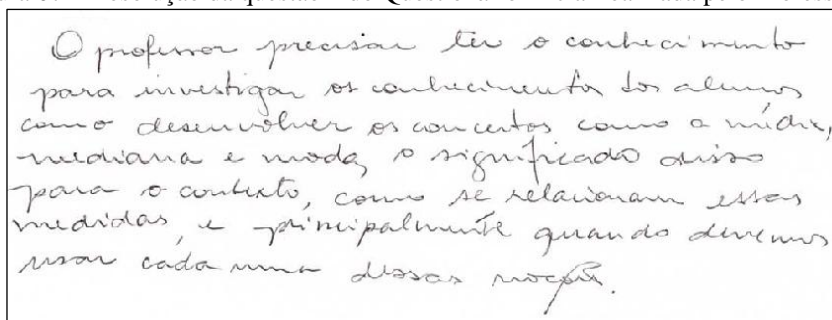 O professor precisar ter o conhecimento
para investigar os conhecimentos dos alunos
como desenvolver os conceitos como a média,
mediana e moda, o significado disso
para o contexto, como se relacionam essas
medidas, e principalmente quando devemos
usar cada uma dessas noções.